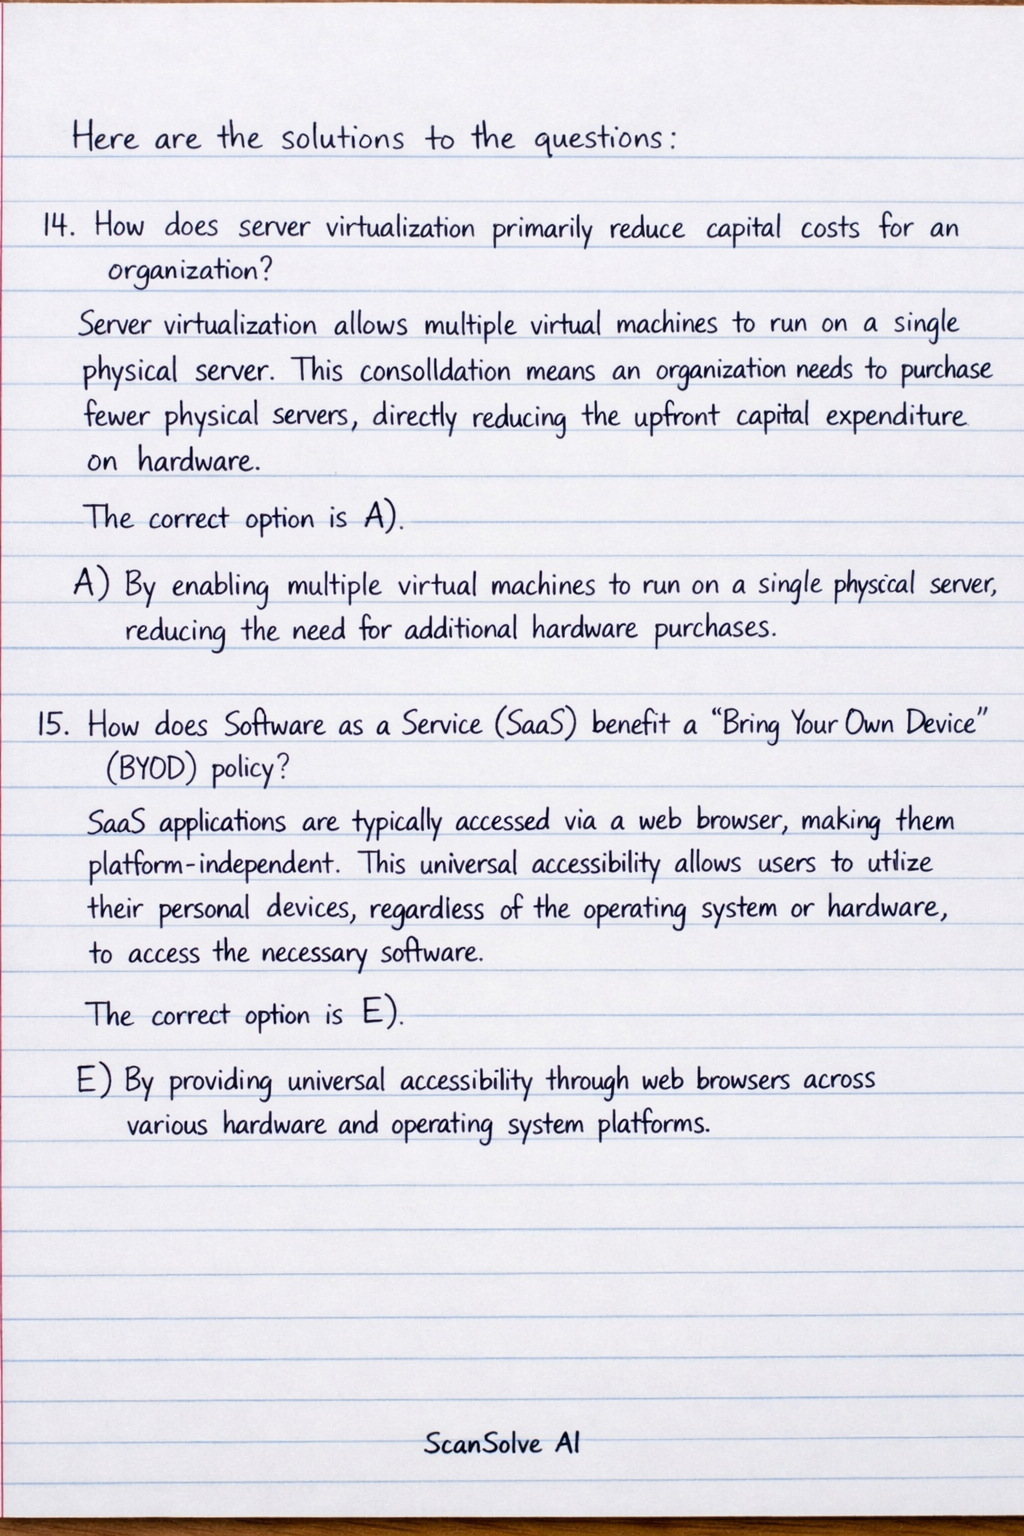 Here are the solutions to the questions:
14. How does server virtualization primarily reduce capital costs for an
organization?
Server virtualization allows multiple virtual machines to run on a single
physical server. This consolldation means an organization needs to purchase
fewer physical servers, directly reducing the upfront capital expenditure
on hardware.
The correct option is A).
A) By enabling multiple virtual machines to run on a single physical server,
reducing the need for additional hardware purchases.
15. How does Software as a Service (SaaS) benefit a “Bring Your Own Device”
(BYOD) policy?
SaaS applications are typically accessed via a web browser, making them
platform-independent. This universal accessibility allows users to utilize
their personal devices, regardless of the operating system or hardware,
to access the necessary software.
The correct option is E).
E) By providing universal accessibility through web browsers across
various hardware and operating system platforms.
ScanSolve AI